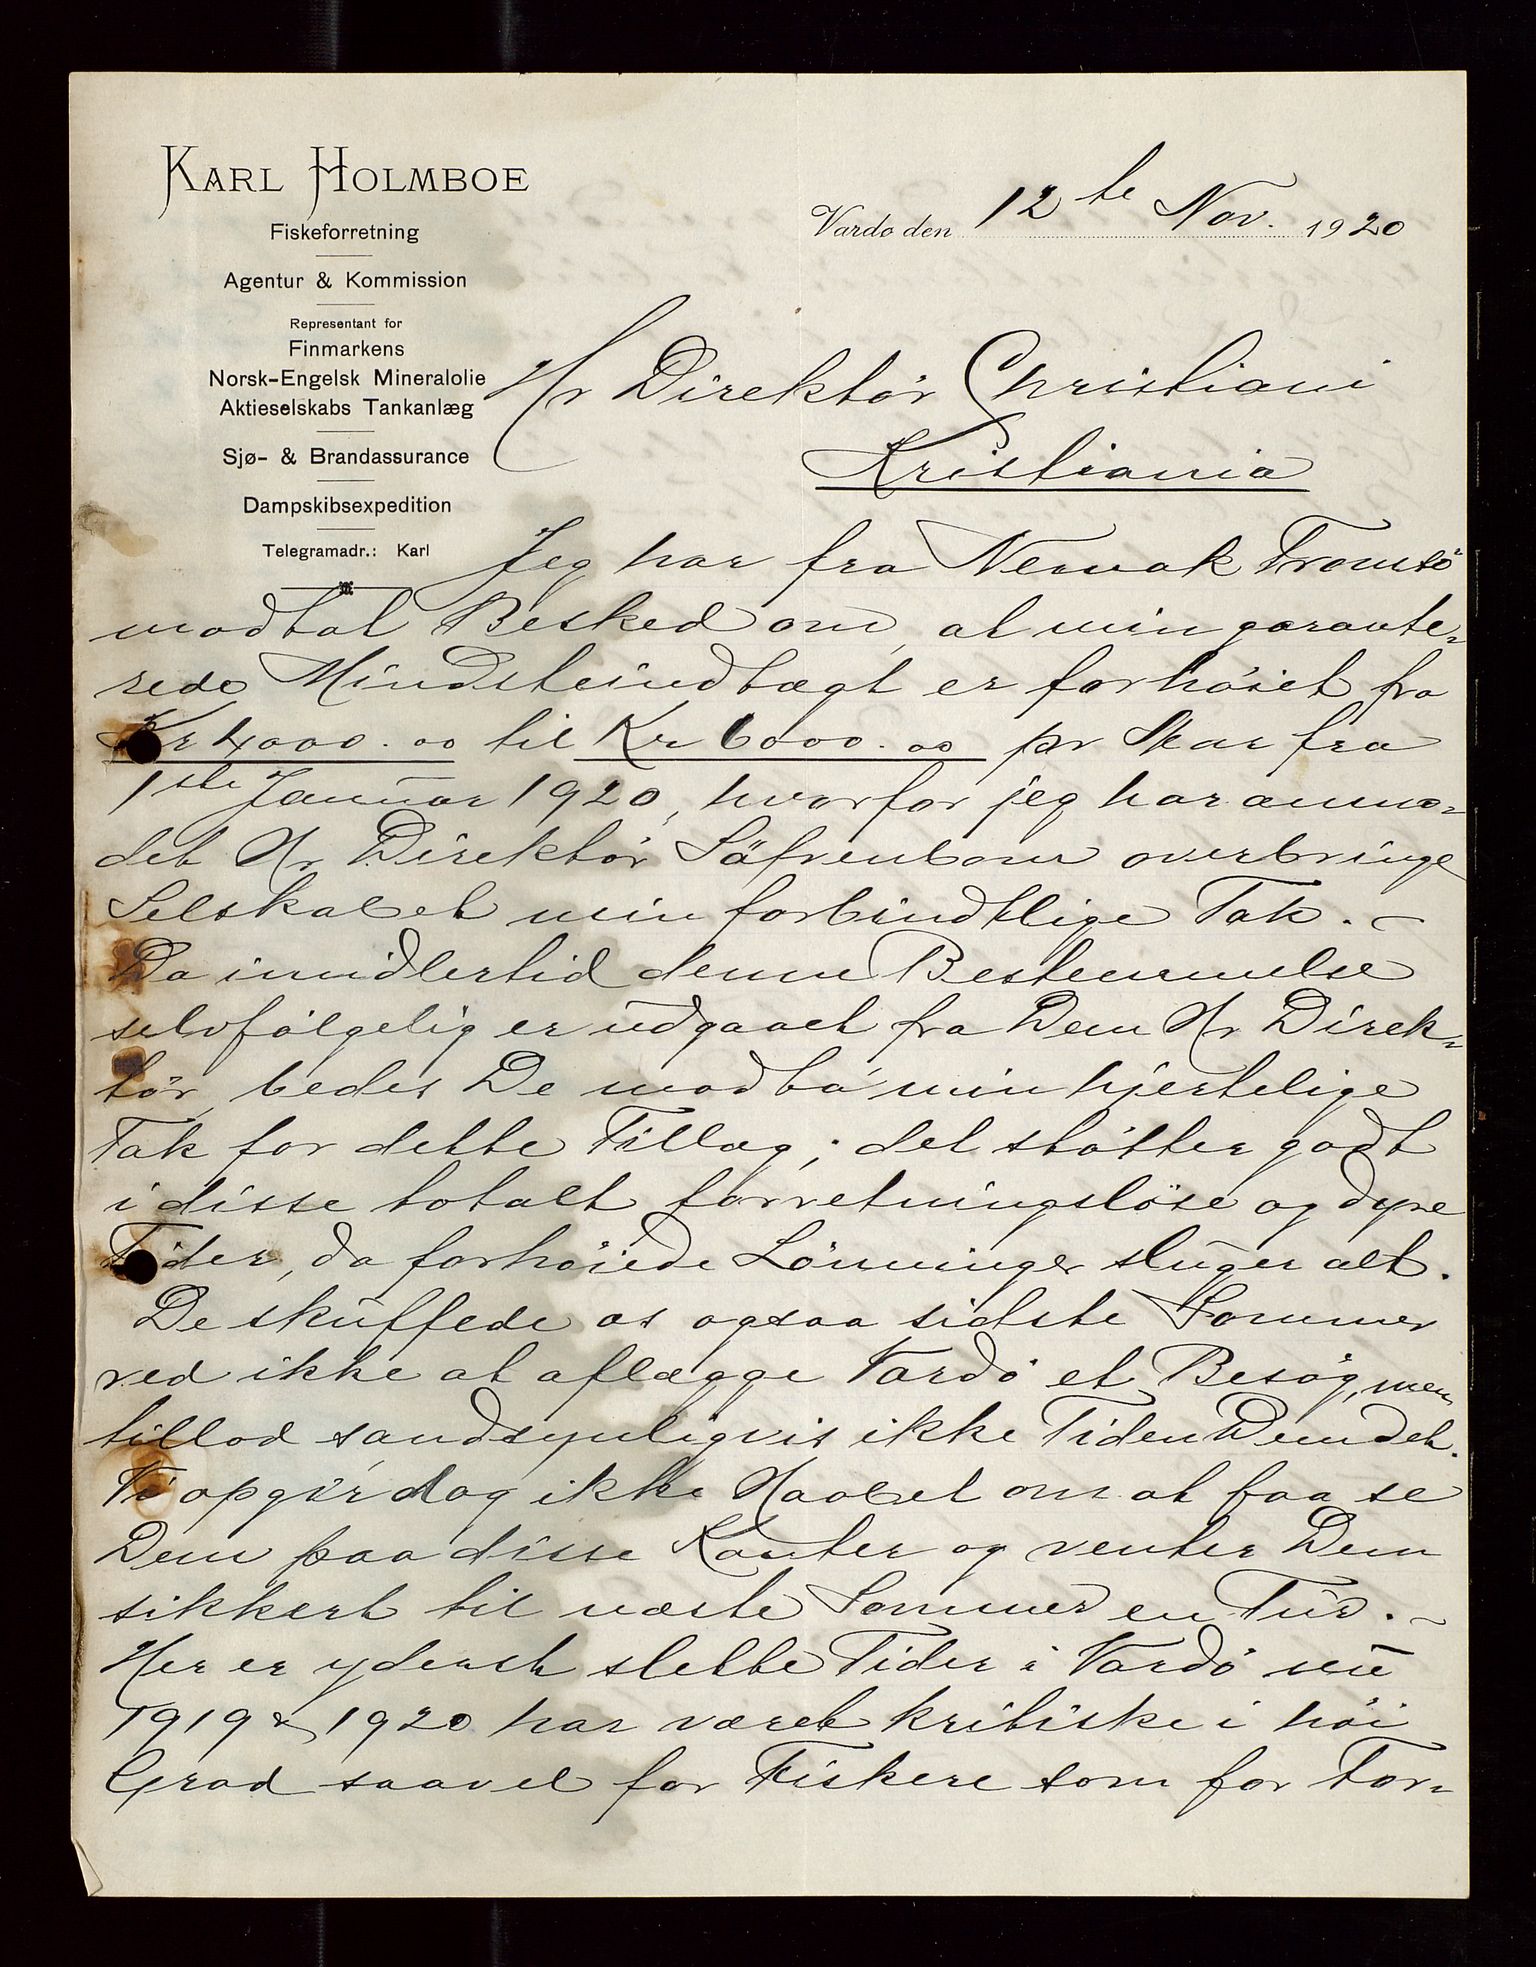 KARL HOLMBOE
Fiskeforretning
Agentur & Kommission
Representant for
Finmarkens
Norsk-Engelsk Mineralolie
Aktieselskabs Tankanlæg
Sjø- & Brandassurance
Dampskibsexpedition
Telegramadr.: Karl
Vardø den 12te Nov. 1920
Hr Direktör Christiani
Kristiania
Jeg har fra Nemak Tromsö
modtat Besked om, at min garante-
rede Mindsteindtægt er forhöiet fra
Kr 4000.00 til Kr 6000.00 pr Aar fra
1ste Januar 1920, hvorfor jeg har anmo-
det Hr Direktör Säfvenbom overbringe
Selskabet min forbindtlige Tak. -
Da imidlertid denne Bestemmelse
selvfölgelig er udgaaet fra Dem Hr Direk-
tör, bedes De modta min hjertelige
Tak for dette Tillæg; det stötter godt
i disse totalt forretningslöse og dyre
Tider, da forhöiede Lönninger sluger alt.
De skuffede os ogsaa sidste Sommer
ved ikke at aflægge Vardö et Besög, men
tillod sandsynligvis ikke Tiden Dem det.
Vi opgir dog ikke Haabet om at faa se
Dem paa disse Kanter og venter Dem
sikkert til næste Sommer en Tur. -
Her er yderst slette Tider i Vardö nu
1919 & 1920 har været kritiske i höi
Grad saavel for Fiskere som for For-